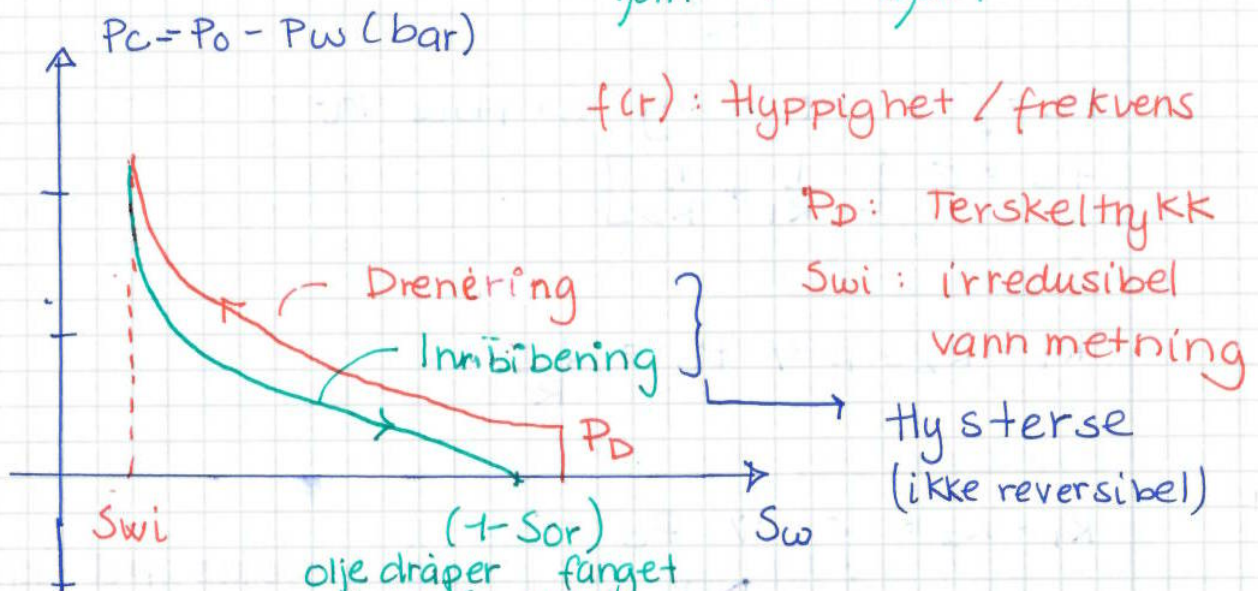 Pc = Po - Pw (bar)
f(r) : Hyppighet / frekvens
PD : Terskeltrykk
Swi : irredusibel
vann metning
Drenéring
Innbibering
Hysterse
(ikke reversibel)
PD
Swi
(1-Sor)
Sw
olje dråper fanget